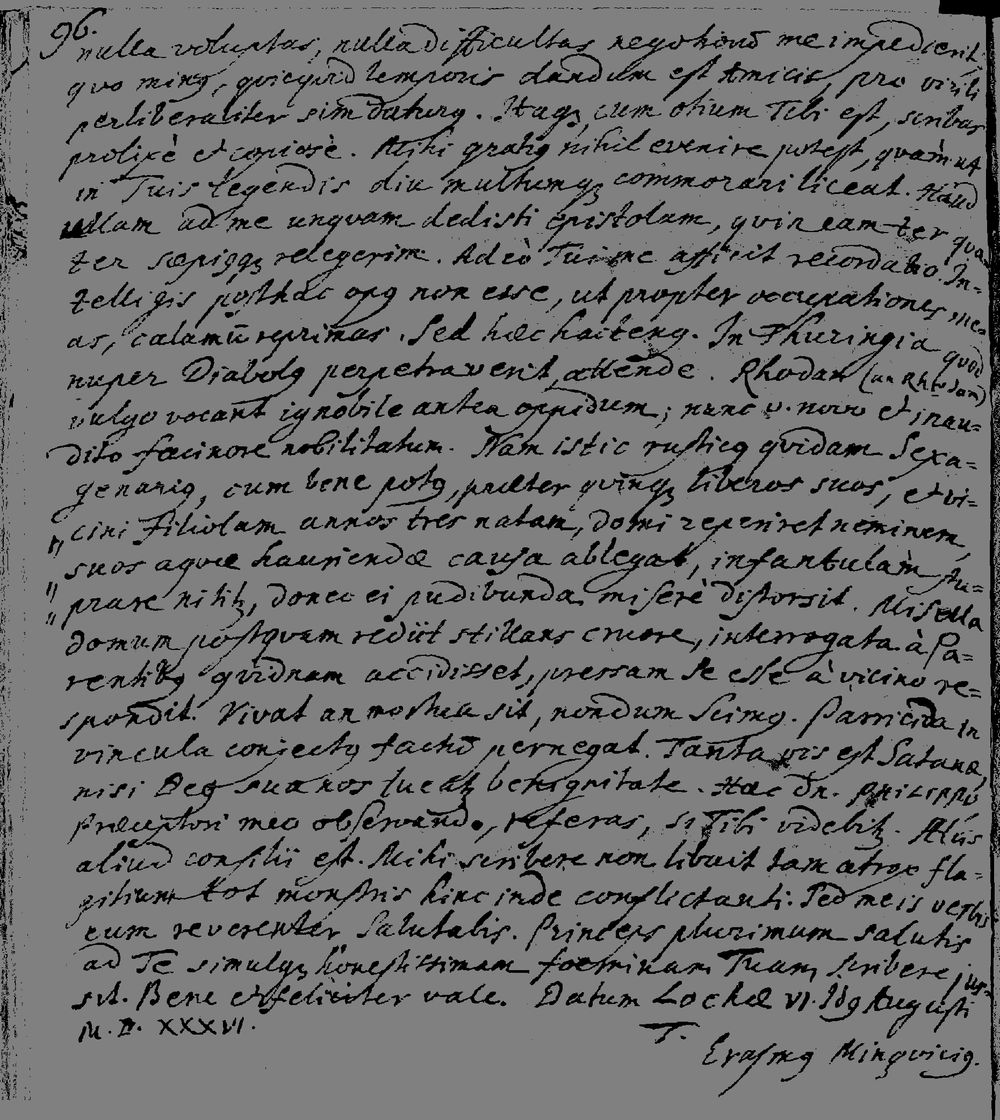 96.
nulla voluptas, nulla difficultas negotiorū me impedierit,
quo minꝰ, quicquid temporis dandum est Amicis, pro virili
perliberaliter sim daturꝰ. Itaqꝫ cum otium Tibi est, scribas
prolixè et copiosè. Mihi gratiꝰ nihil evenire potest, quàm ut
in Tuis legendis diu multumqꝫ commorari liceat. Haud
ullam ad me unquam dedisti epistolam, quin eam ter qua-
ter sæpiꝰqꝫ relegerim. Adeò Tui me afficit recordatio. In-
telligis posthac opꝰ non esse, ut propter occupationes me-
as, calamū reprimas. Sed hæc hactenꝰ. In Thuringia quod
nuper Diabolꝰ perpetraverit, attende. Rhodam
vulgo vocant ignobile antea oppidum; nunc v. novo et inau-
dito facinore nobilitatum. Nam istic rusticꝰ quidam Sexa-
genariꝰ, cum bene potꝰ, præter quinqꝫ liberos suos, et vi-
cini filiolam annos tres natam, domi reperiret neminem,
suos aquæ hauriendæ causa ablegat, infantulam stu-
prare nititꝫ, donec ei pudibunda miserè distorsit. Misella
domum postquam rediit stillans cruore, interrogata à Pa-
rentibꝰ quidnam accidisset, pressam se esse à vicino re-
spondit. Vivat an mortua sit, nondum scimꝰ. Parricida in
vincula conjectꝰ factū pernegat. Tanta vis est Satanæ,
nisi Deꝰ sua nos tueatꝫ benignitate. Hæc Dn. PHILIPPO
Præceptori meo observand., referas, si Tibi videbitꝫ. Aliis
aliud consilii est. Mihi scribere non libuit tam atrox fla-
gitium tot monstris hinc inde conflictanti. Sed meis verbis
eum reverenter Salutabis. Princeps plurimum salutis
ad Te simulqꝫ honestissimam foeminam Tuam scribere jus-
sit. Bene et feliciter vale. Datum Lochæ VI. Idꝰ Augusti
M. D. XXXVI.
T.
Erasmꝰ Minqviciꝰ.